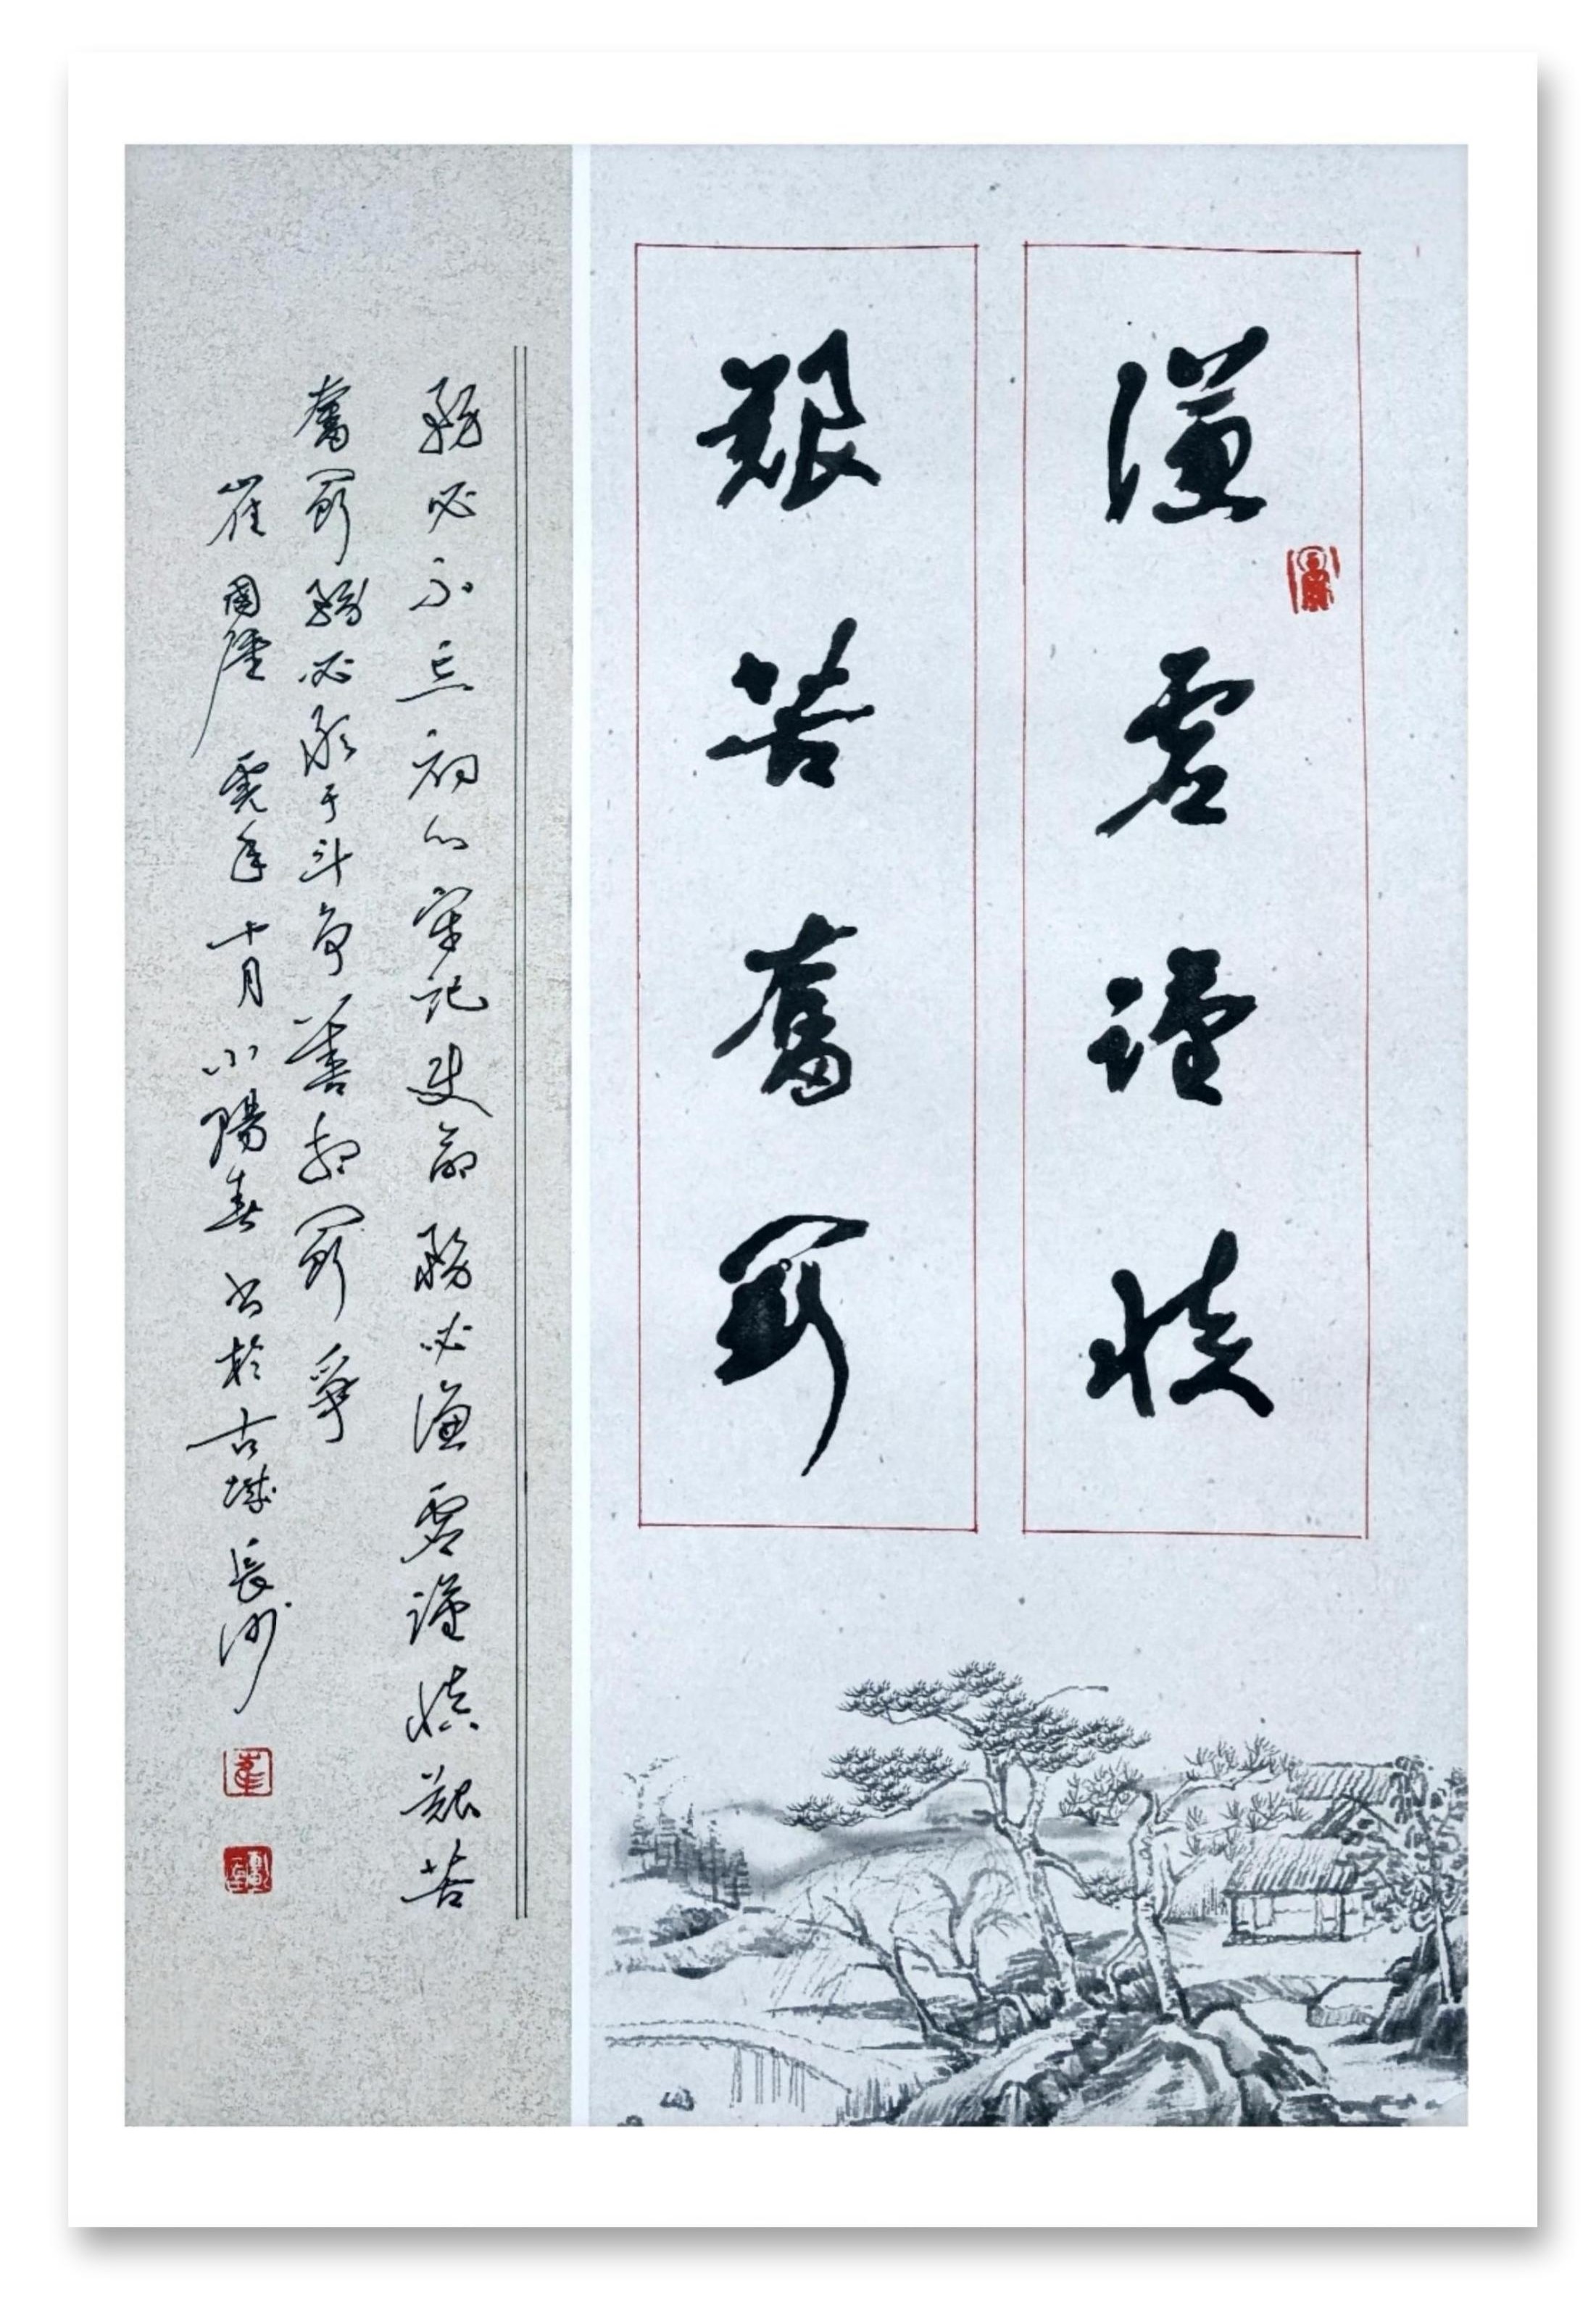 謙虚謹慎
艱苦奮鬥
務必不忘初心牢記使命務必謙虚謹慎艱苦
奮鬥務必敢于斗争善於鬥爭
崔國 虎年十月小陽春书於古城長沙
崔